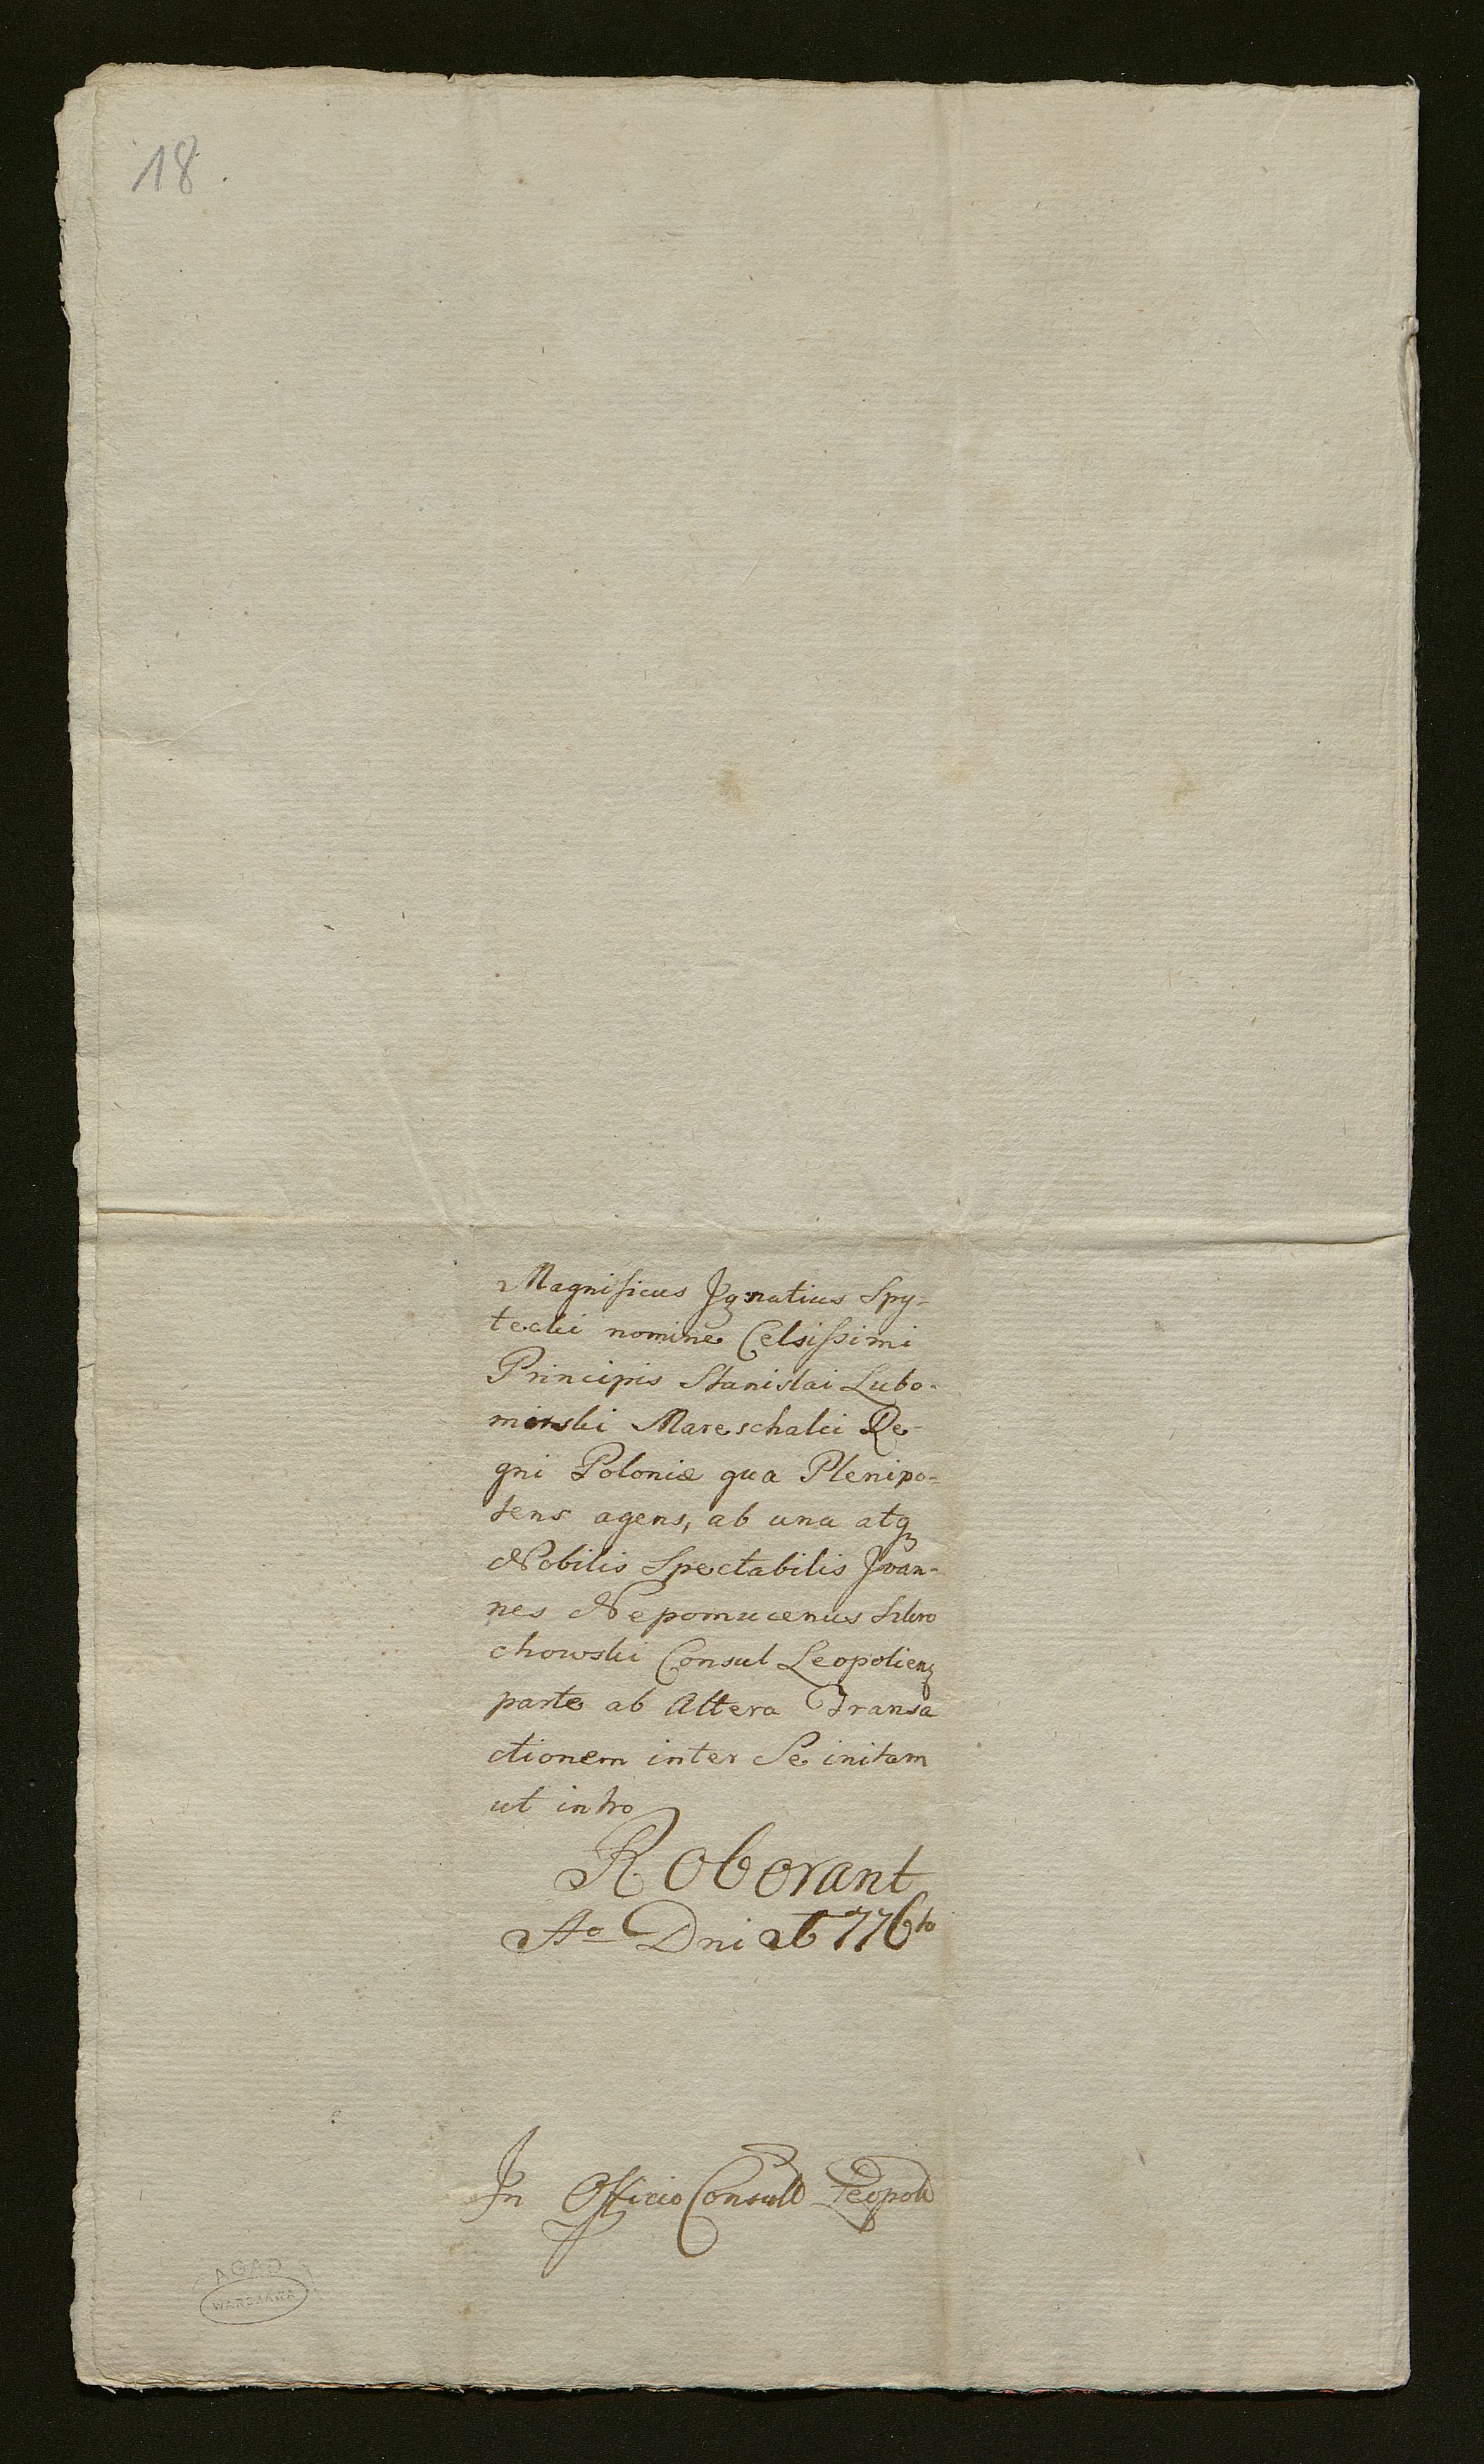 18.
Magnificus Jgnatius Spy-
tecki nomine Celsissimi
Principis Stanislai Lubo-
mirski Mareschalci Re-
gni Poloniæ qua Plenipo-
tens agens, ab una atq
Nobilis Spectabilis Joan-
nes Nepomucenus
chowski Consul Leopolien
parte ab Altera Transa
ctionem inter Se initam
ut intro
Roborant
Ao Dni 1776to
In Officio Consull Leopoli
AGAD
WARSZAWA